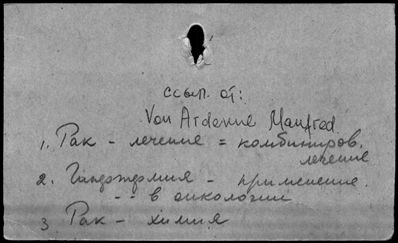 ссыл. от:
Von Ardenne Manfred
1. Рак - лечение = комбиниров.
лечение
2. - применение
-"- в онкологии
3. Рак - химия